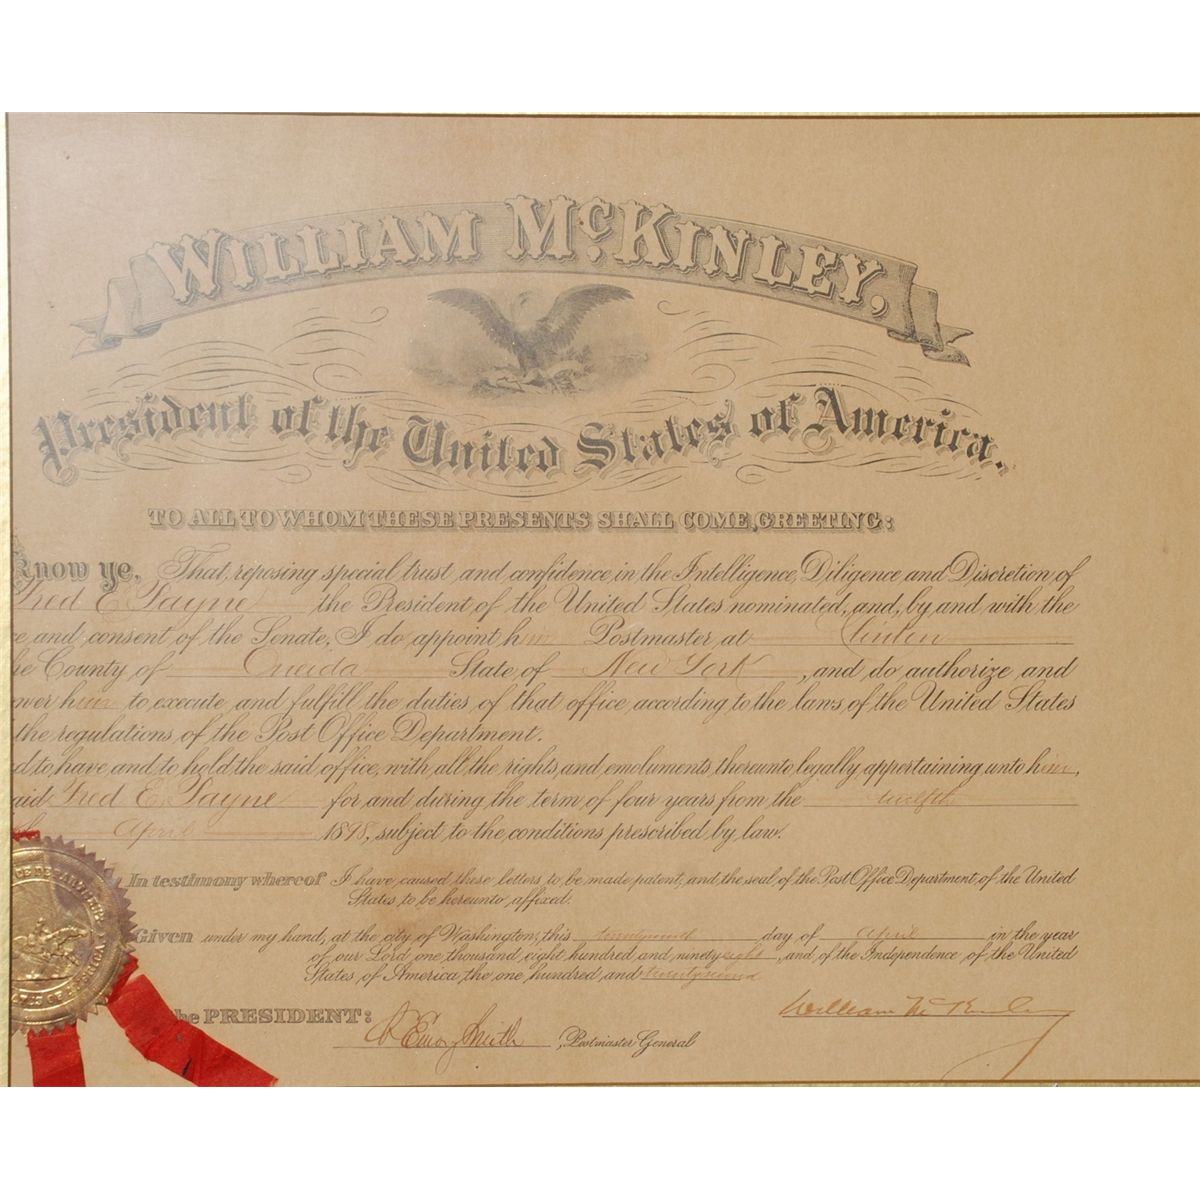 WILLIAM McKINLEY,
President of the United States of America.
TO ALL TO WHOM THESE PRESENTS SHALL COME, GREETING:
Know ye, That, reposing special trust and confidence in the Intelligence, Diligence and Discretion of
Fred E. Payne the President of the United States nominated, and, by and with the
ce and consent of the Senate, I do appoint him Postmaster at Clinton
he County of Oneida State of New York, and do authorize and
ower him to execute and fulfill the duties of that office, according to the laws of the United States
the regulations of the Post Office Department.
d to have and to hold the said office, with all the rights and emoluments thereunto legally appertaining unto him,
aid Fred E. Payne for and during the term of four years from the twelfth
April 1898, subject to the conditions prescribed by law.
In testimony whereof I have caused these letters to be made patent, and the seal of the Post Office Department, of the United
States, to be hereunto affixed.
Given under my hand, at the city of Washington, this day of April in the year
of our Lord one thousand eight hundred and ninety eight, and of the Independence of the United
States of America the one hundred and twenty second
he PRESIDENT:
William McKinley
Emory Smith, Postmaster General